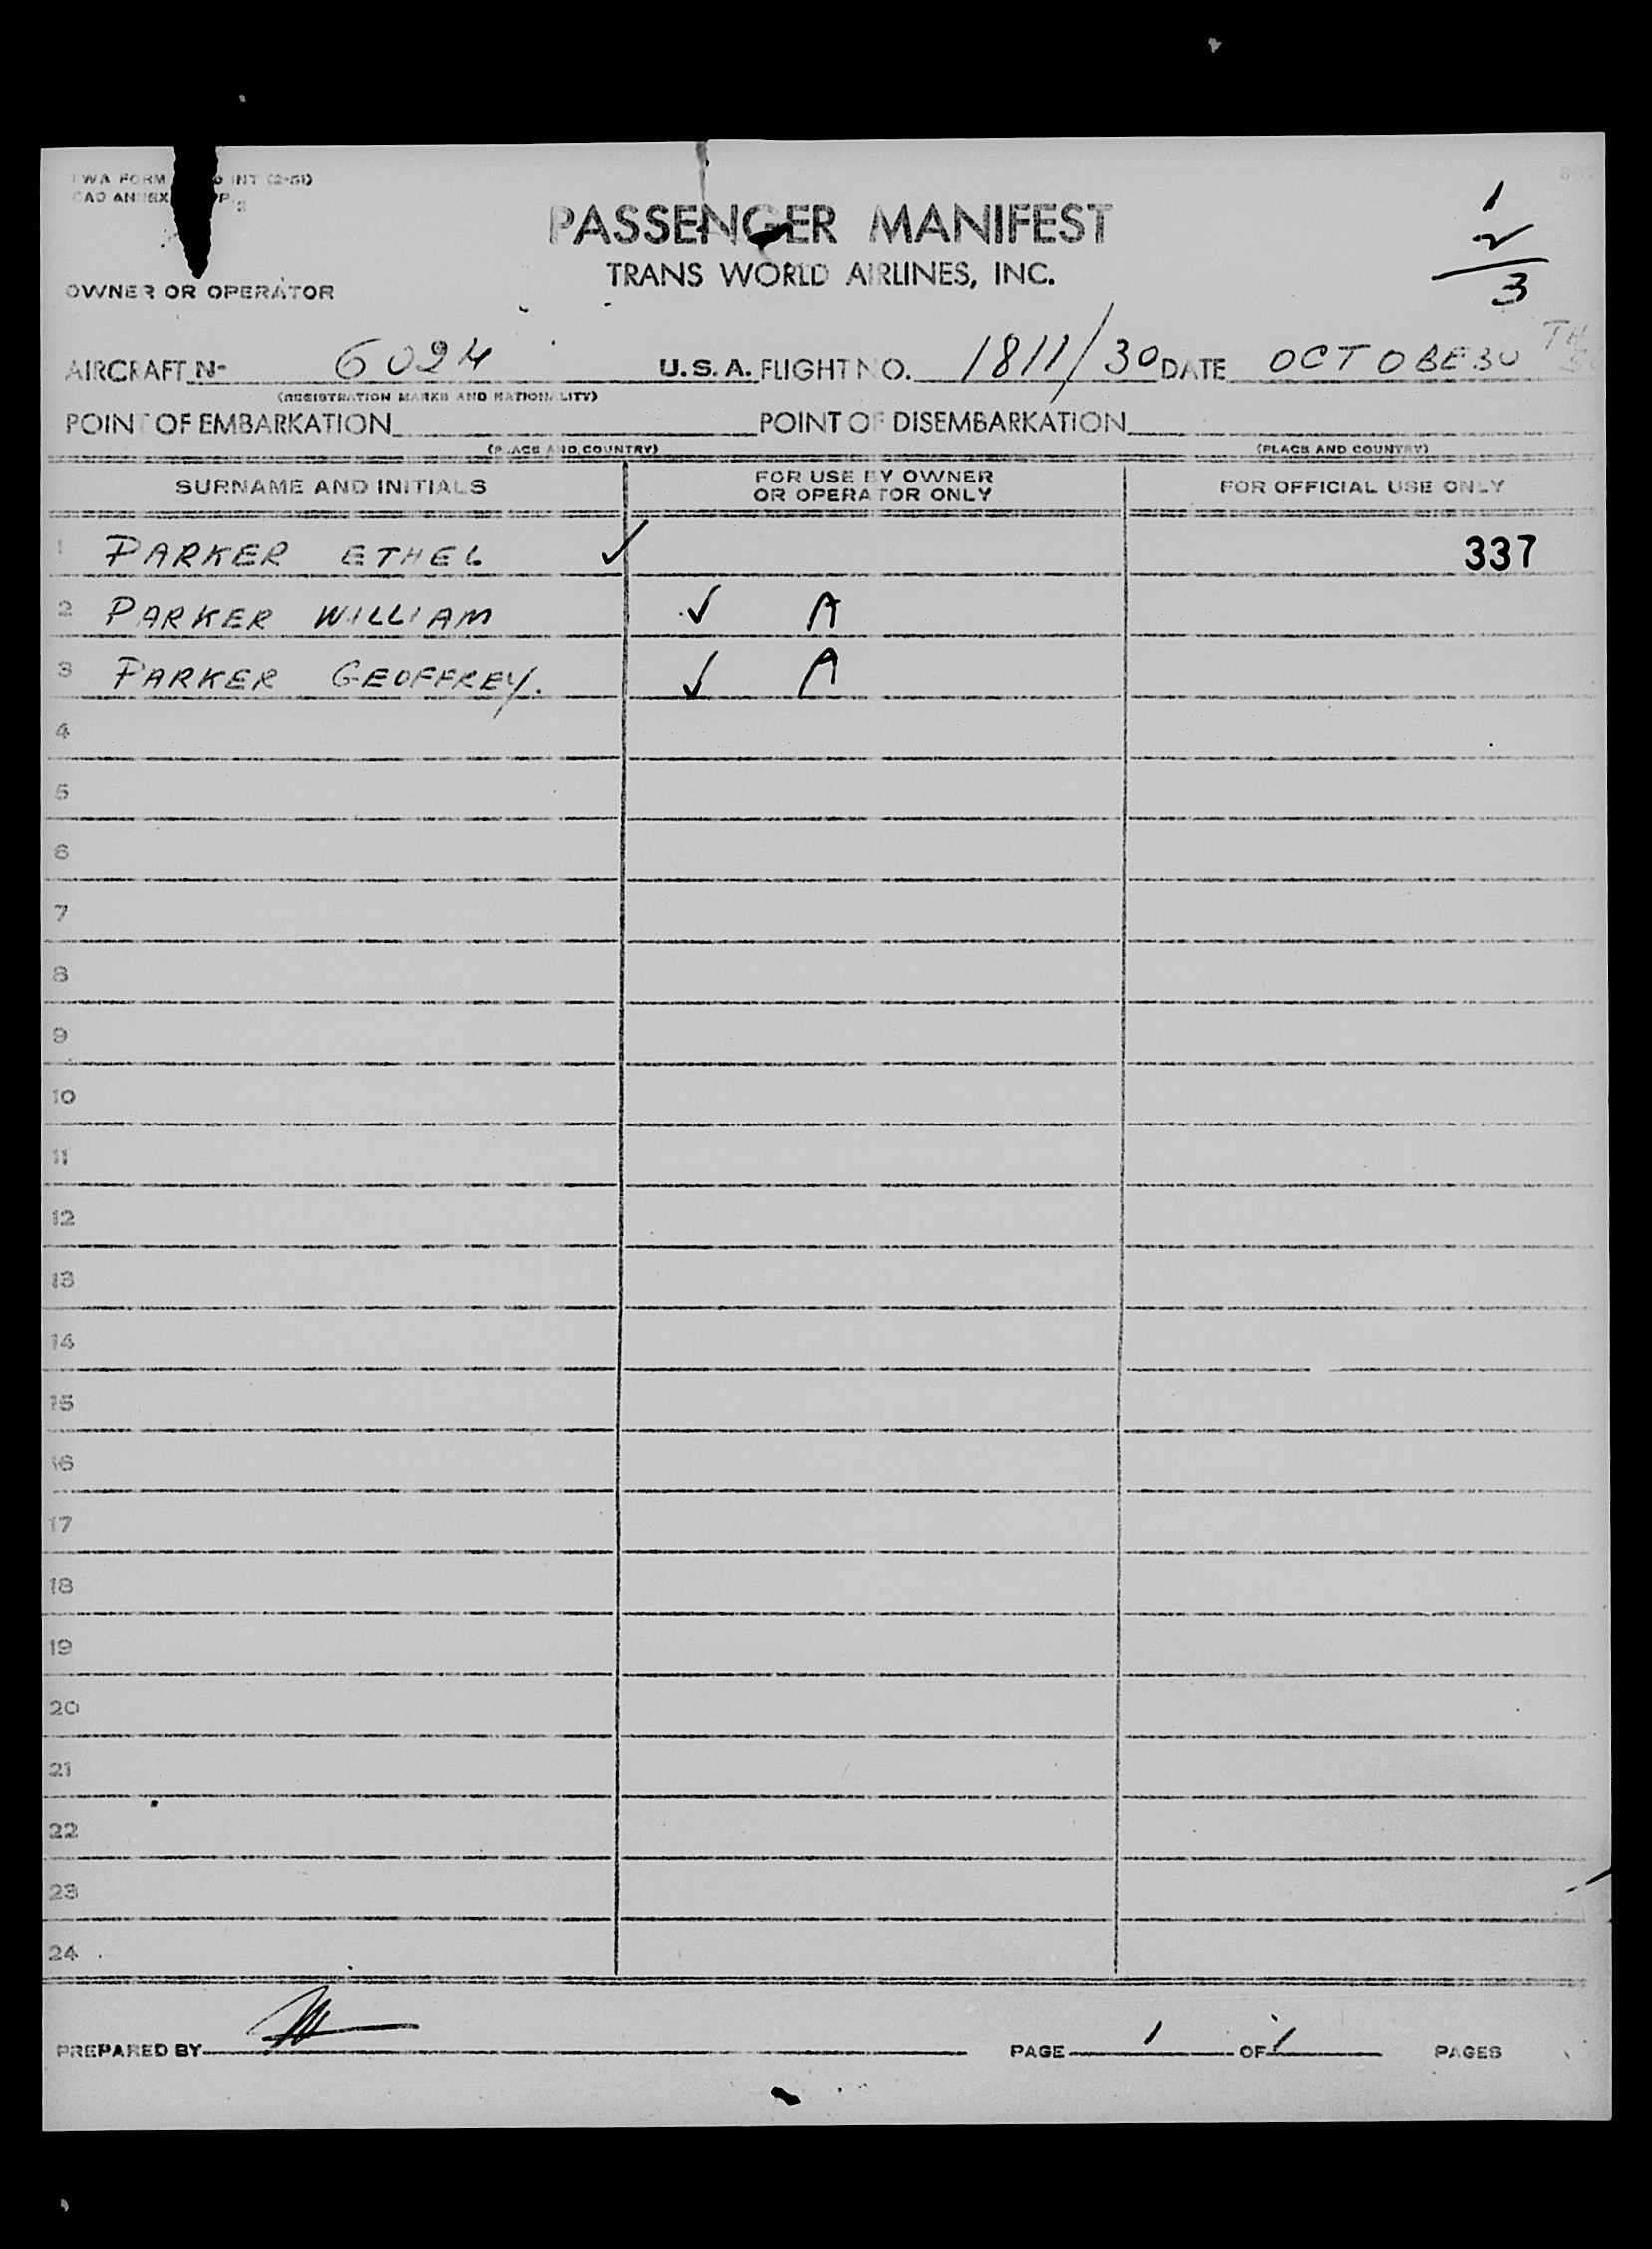 TWA FORM INT (2-51)
CAO ANNEX
PASSENGER MANIFEST
TRANS WORLD AIRLINES, INC.
1
2
3
OWNER OR OPERATOR
AIRCRAFT N- 6024 U.S.A. FLIGHT NO. 1811/30 DATE OCTOBE 30 TH
(REGISTRATION MARKS AND NATIONALITY)
POINT OF EMBARKATION POINT OF DISEMBARKATION
(PLACE AND COUNTRY) (PLACE AND COUNTRY)
SURNAME AND INITIALS FOR USE BY OWNER OR OPERATOR ONLY FOR OFFICIAL USE ONLY
1 PARKER ETHEL ✓ 337
2 PARKER WILLIAM ✓ A
3 PARKER GEOFFREY. ✓ A
4
5
6
7
8
9
10
11
12
13
14
15
16
17
18
19
20
21
22
23
24
PREPARED BY PAGE 1 OF 1 PAGES